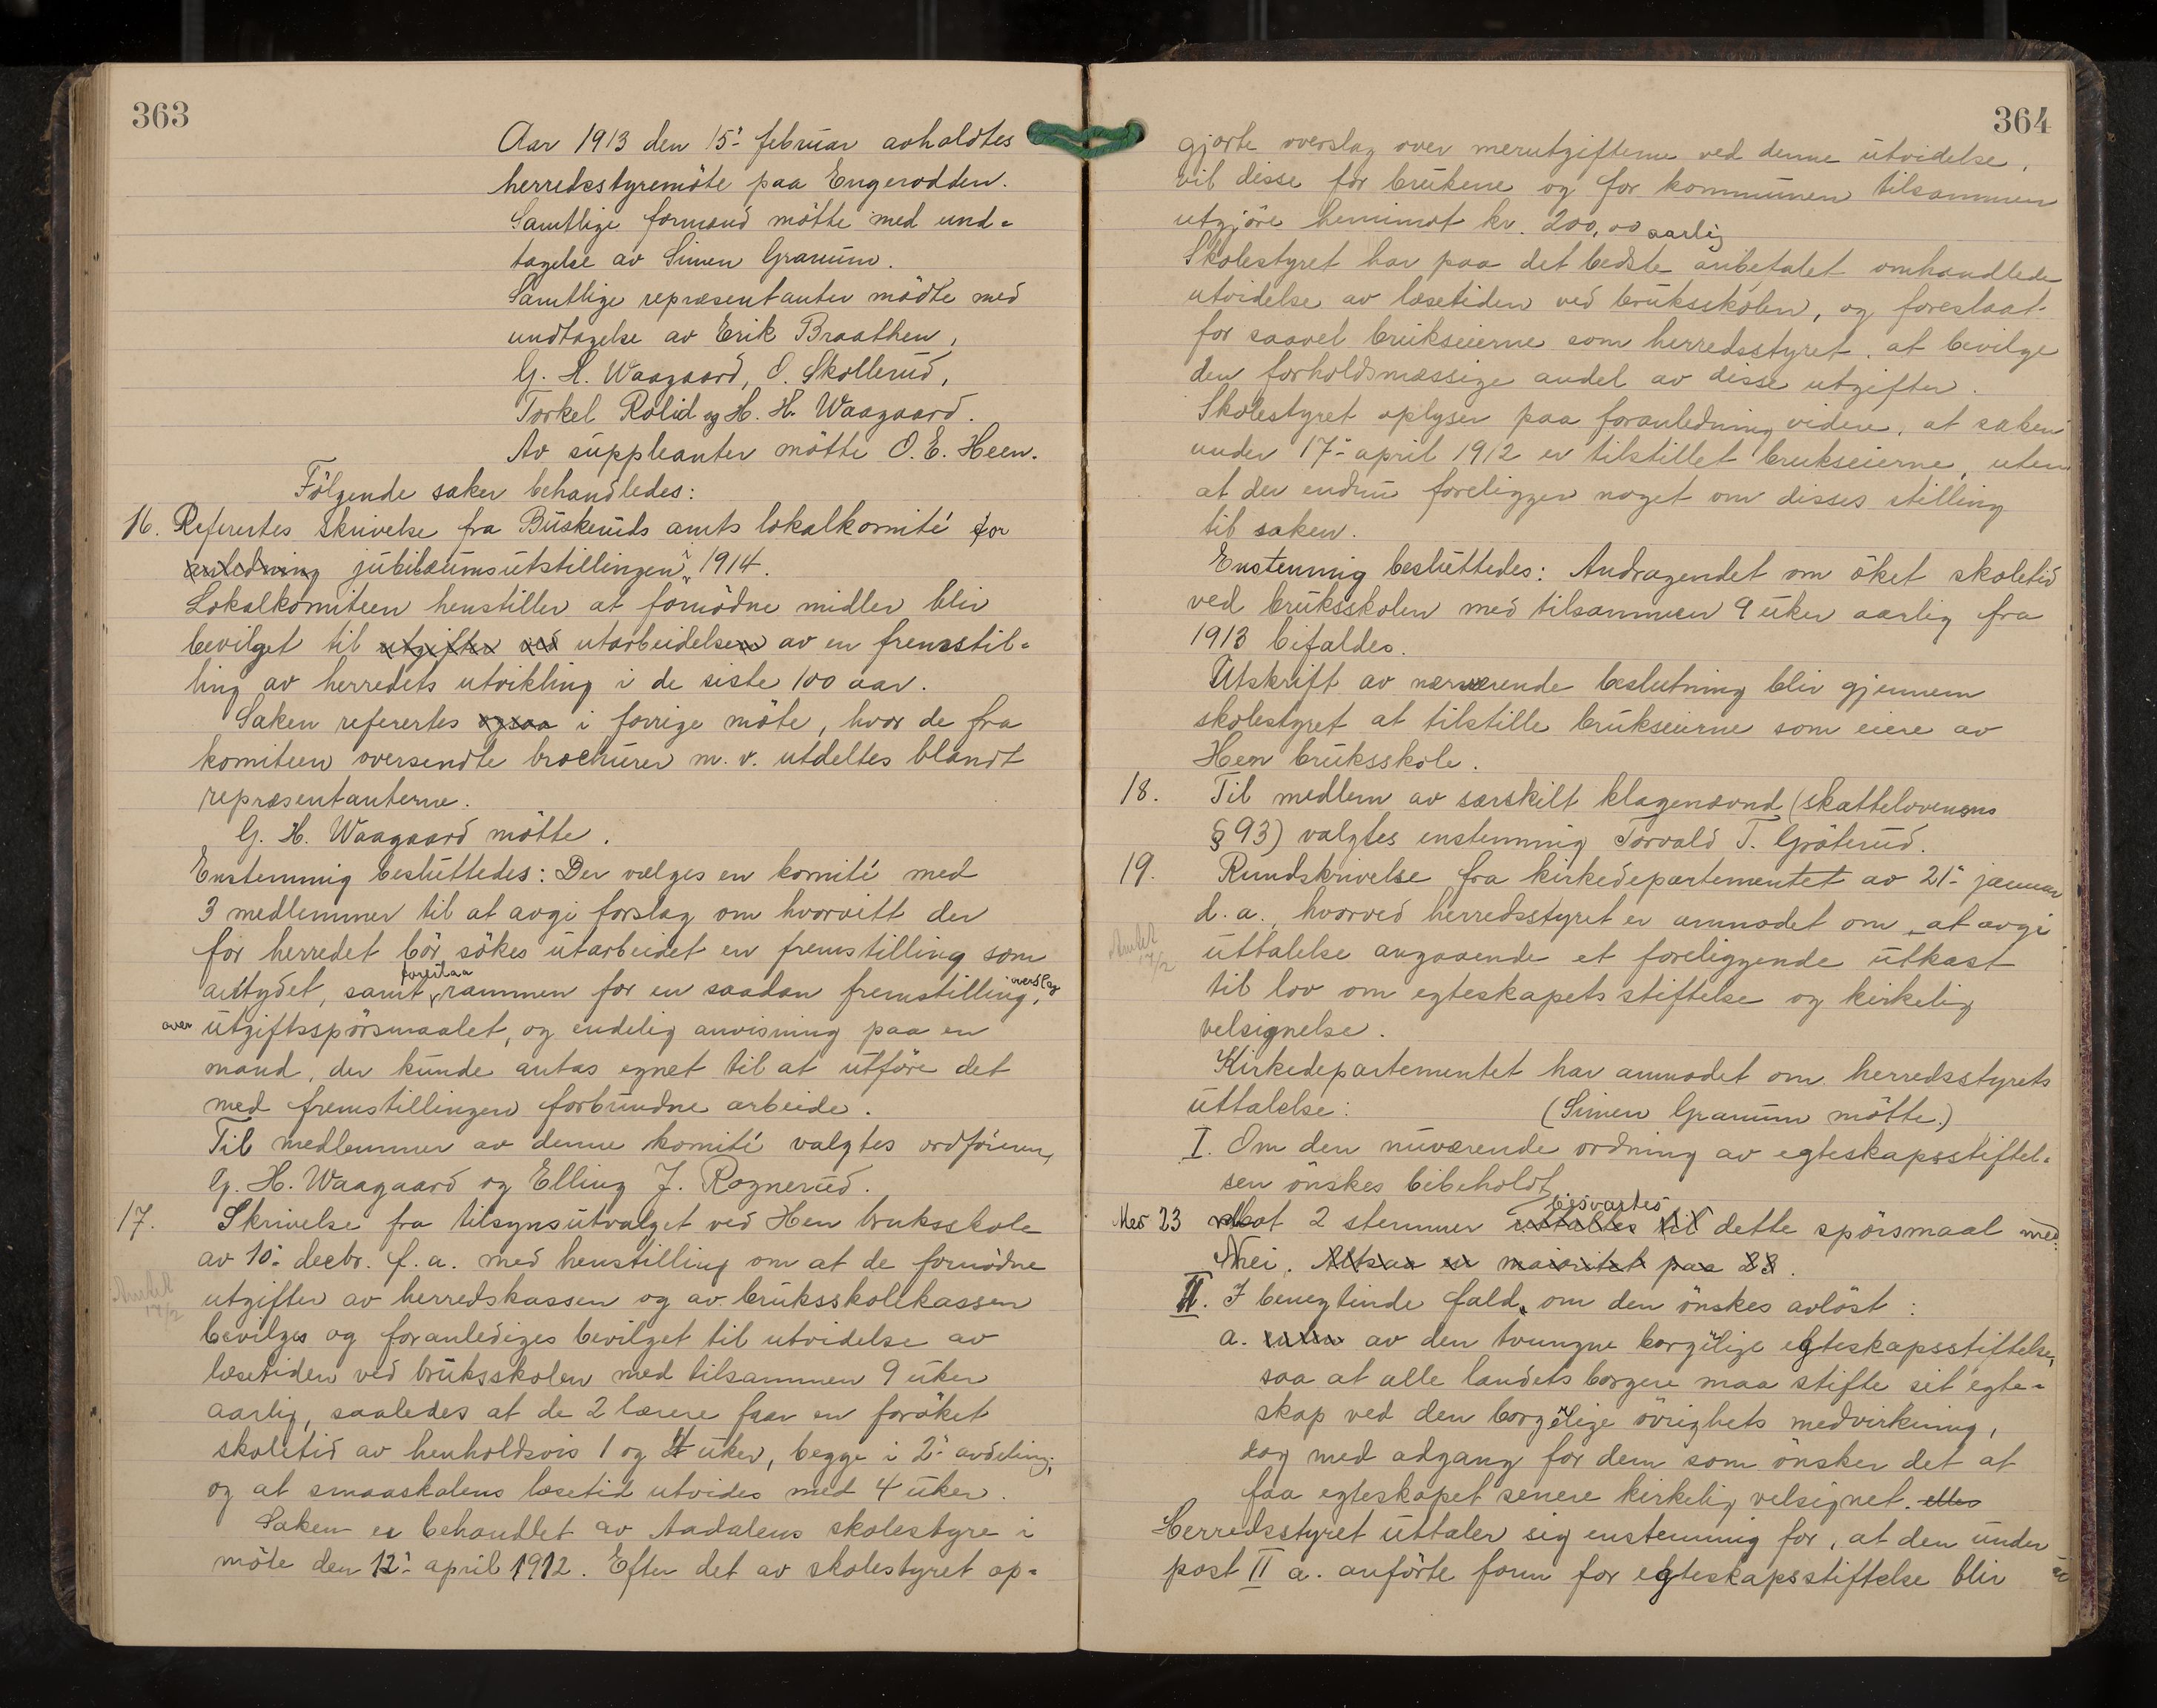 363
Aar 1913 den 15' februar avholdtes
herredsstyremöte paa Engerodden.
Samtlige formænd mötte med und-
tagelse av Simen Granum.
Samtlige repræsentanter mödte med
undtagelse av Erik Braathen,
G. H. Waagaard, O. Skollerud,
Torkel Rolid og H. H. Waagaard.
Av suppleanter mötte O. E. Heen.
Fölgende saker behandledes:
16. Refertes skrivelse fra Buskeruds amts lokalkomité for
anledning jubilæumsutstillingen 1914.
Lokalkomiteen henstiller at fornödne midler blir
bevilget til utgifter ved utarbeidelsen av en fremstil-
ling av herredets utvikling i de siste 100 aar.
Saken refertes ogsaa i forrige möte, hvor de fra
komiteen oversendte brochurer m. v. utdeltes blandt
repræsentanterne.
G. H. Waagaard mötte.
Enstemmig besluttedes: Der vælges en komité med
3 medlemmer til at avgi forslag om hvorvitt der
for herredet bör sökes utarbeidet en fremstilling som
antydet, samt foreslaa rammen for en saadan fremstilling, overslag
over utgiftsspörsmaalet, og endelig anvisning paa en
mand, der kunde antas egnet til at utföre det
med fremstillingen forbundne arbeide.
Til medlemmer av denne komité valgtes ordföreren,
G. H. Waagaard og Elling J. Rognerud.
17. Skrivelse fra tilsynsutvalget ved Hen bruksskole
av 10' decbr. f. a. med henstilling om at de fornödne
Anket
14/2
utgifter av herredskassen og av bruksskolekassen
bevilges og foranlediges bevilget til utvidelse av
læsetiden ved bruksskolen med tilsammen 9 uker
aarlig, saaledes at de 2 lærere faar en foröket
skoletid av henholdsvis 1 og 4 uker, begge i 2' avdeling,
og at smaaskolens læsetid utvides med 4 uker.
Saken er behandlet av Aadalens skolestyre i
möte den 12' april 1912. Efter det av skolestyret op-
364
gjorte overslag over merutgifterne ved denne utvidelse,
vil disse for brukene og for kommunen tilsammen
utgjöre henimot kr. 200,00 aarlig
Skolestyret har paa det bedste anbefalet omhandlede
utvidelse av læsetiden ved bruksskolen, og foreslaat
for saavel brukseierne som herredsstyret, at bevilge
den forholdsmæssige andel av disse utgifter.
Skolestyret oplyser paa foranledning videre, at saken
under 17' april 1912 er tilstillet brukseierne, uten
at der endnu foreligger noget om disses stilling
til saken.
Enstemmig besluttedes: Andragendet om öket skoletid
ved bruksskolen med tilsammen 9 uker aarlig fra
1913 bifaldes.
Utskrift av nærværende beslutning blir gjennem
skolestyret at tilstille brukseierne som eiere av
Hen bruksskole.
18. Til medlem av særskilt klagenævnd (skattelovens
§ 93) valgtes enstemmig Torvald T. Gröterud.
19. Rundskrivelse fra kirkedepartementet av 21' januar
d. a., hvorved herredsstyret er anmodet om at avgi
Anket
14/2
uttalelse angaaende et foreliggende utkast
til lov om egteskapets stiftelse og kirkelig
velsignelse.
Kirkedepartementet har anmodet om herredsstyrets
uttalelse: (Simen Granum mötte.)
I. Om den nuværende ordning av egteskapsstiftel-
sen önskes bibeholdt
Med 23 mot 2 stemmer uttaltes til besvartes dette spörsmaal med
Nei. Altsaa en majoritet paa 23.
II. I benegtende fald, om den önskes avlöst:
a. enten av den tvungne borgelige egteskapsstiftelse,
saa at alle landets borgere maa stifte sit egte-
skap ved den borgelige övrighets medvirkning,
dog med adgang for dem som önsker det at
faa egteskapet senere kirkelig velsignet. eller
Herredsstyret uttaler sig enstemmig for, at den under
post II a. anförte form for egteskapsstiftelse blir